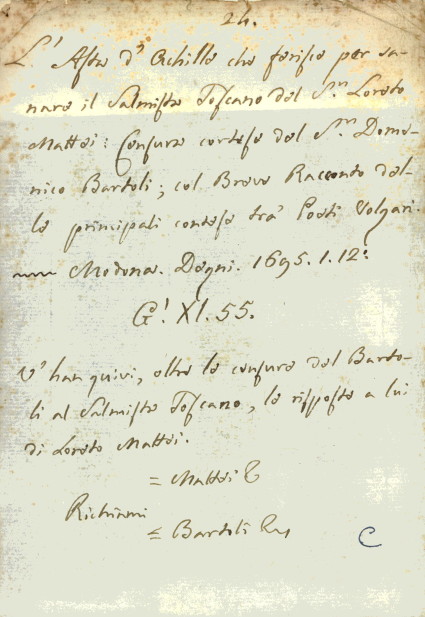 24.
L' Asta d' Achille che ferisce per sa-
nare il Salmista Toscano del S.r Loreto
Mattei: Censura cortese del S.r Dome-
nico Bartoli; col Breve Racconto del-
le principali contese tra' Poeti Volgari.
Modona. Degni. 1695. 1. 12:
G! XI. 55.
V' han quivi, oltre le censure del Barto-
li al Salmista Toscano, le risposte a lui
di Loreto Mattei.
= Mattei
Richiami
= Bartoli
C